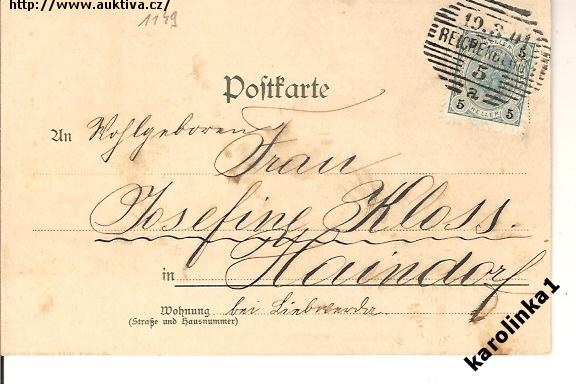 http://www.auktiva.cz/
1149
19.8.01
REICHENBERG
5
a
5
HELLER
5 5
Postkarte
An Wohlgeboren
Frau
Josefine Kloss.
in Haindorf
Wohnung bei Liebwerda
(Straße und Hausnummer)
karolinka1